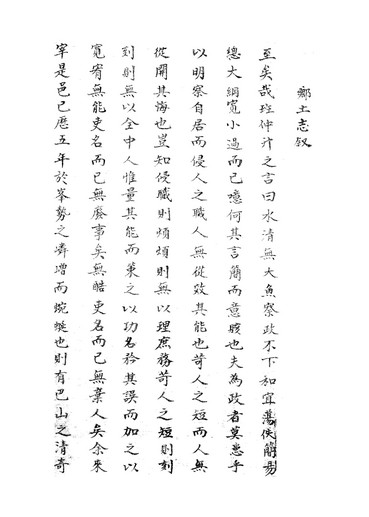 鄉土志敘
至矣哉班仲升之言曰水清無大魚察政不下和宜蕩佚簡易
總大綱寬小過而已噫何其言簡而意賅也夫為政者莫患乎
以明察自居而侵人之職人無從效其能也苛人之短而人無
從開其悔也豈知侵職則煩煩則無以理庶務苛人之短則刻
刻則無以全中人惟量其能而策之以功名矜其誤而加之以
寬宥無能吏名而已無廢事矣無皓吏名而已無棄人矣余來
宰是邑已歷五年於峯勢之嶙增而蜿蜒也則有巴山之清奇